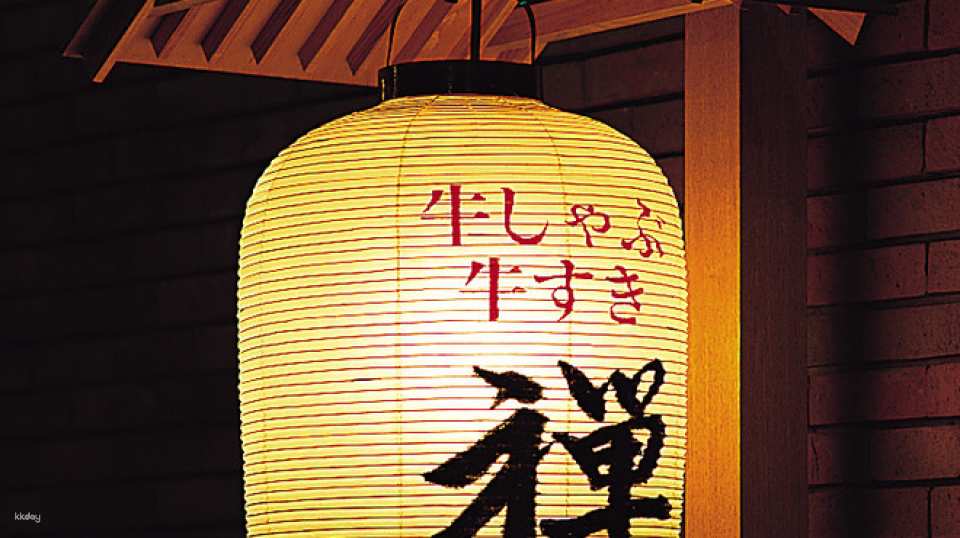 牛しゃぶ
牛すき
禅
kkday